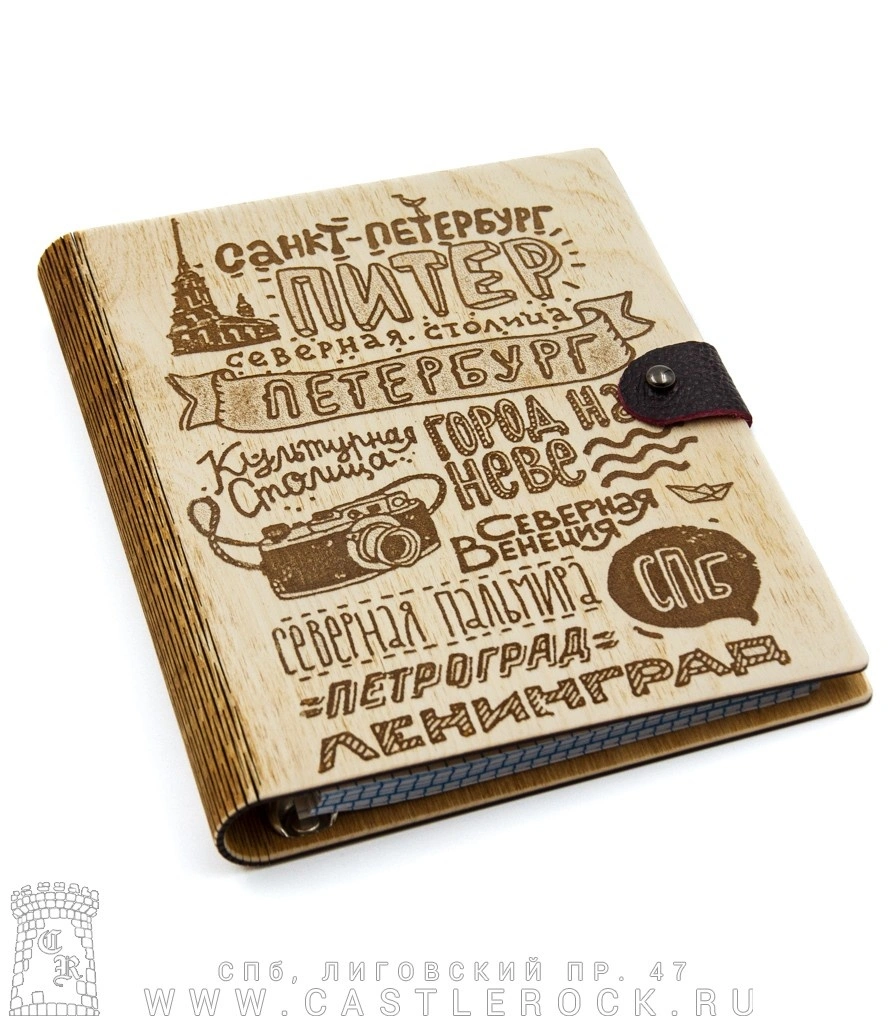 Санкт-Петербург
ПИТЕР
северная столица
ПЕТЕРБУРГ
Культурная
Столица
ГОРОД На
Неве
Северная
Венеция
СПб
северная пальмира
=ПЕТРОГРАД=
ЛЕНИНГРАД
C
R
СПб, ЛИГОВСКИЙ ПР. 47
WWW.CASTLEROCK.RU